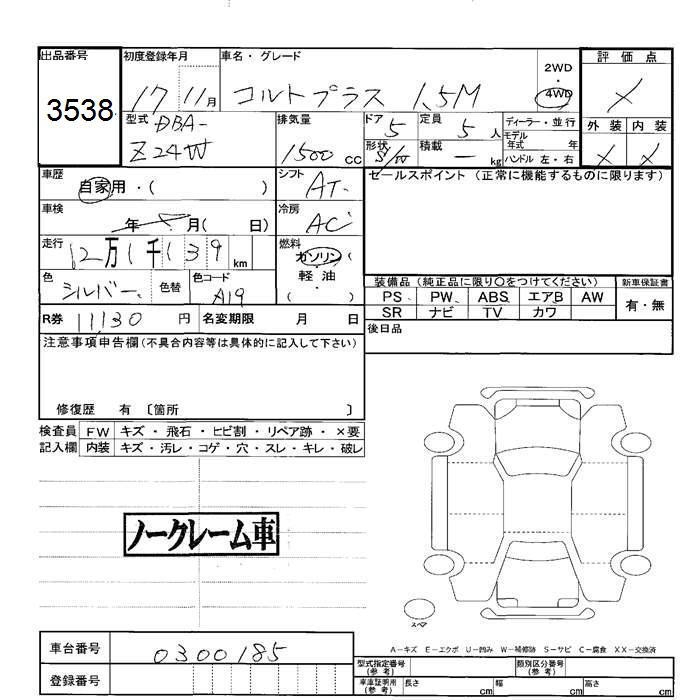 出品番号
3538
初度登録年月
17 11月
車名・グレード
コルトプラス 1.5M
2WD
・
4WD
評価点
×
外装 内装
× ×
型式 DBA-
Z24W
排気量
1500 cc
ドア 5
形状 S/W
定員 5 人
積載 — kg
ディーラー・並行
モデル年式 年
ハンドル 左・右
車歴
自家用・( )
シフト
AT
セールスポイント(正常に機能するものに限ります)
車検
年 月( 日)
冷房
AC
走行
12万1千139km
燃料
ガソリン(
軽油
( )
色
シルバー
色替
色コード
A19
装備品(純正品に限り○をつけてください)
新車保証書
PS PW ABS エアB AW
有・無
SR ナビ TV カワ
R券 11130 円
名変期限 月 日
後日品
注意事項申告欄(不具合内容等は具体的に記入して下さい)
修復歴 有〔箇所 〕
検査員 FW キズ・飛石・ヒビ割・リペア跡・×要
記入欄 内装 キズ・汚レ・コゲ・穴・スレ・キレ・破レ
ノークレーム車
スペア
A-キズ E-エクボ U-凹み W-補修跡 S-サビ C-腐食 XX-交換済
車台番号
0300185
登録番号
型式指定番号(参考)
類別区分番号(参考)
車庫証明用(参考)
長さ cm
幅 cm
高さ cm